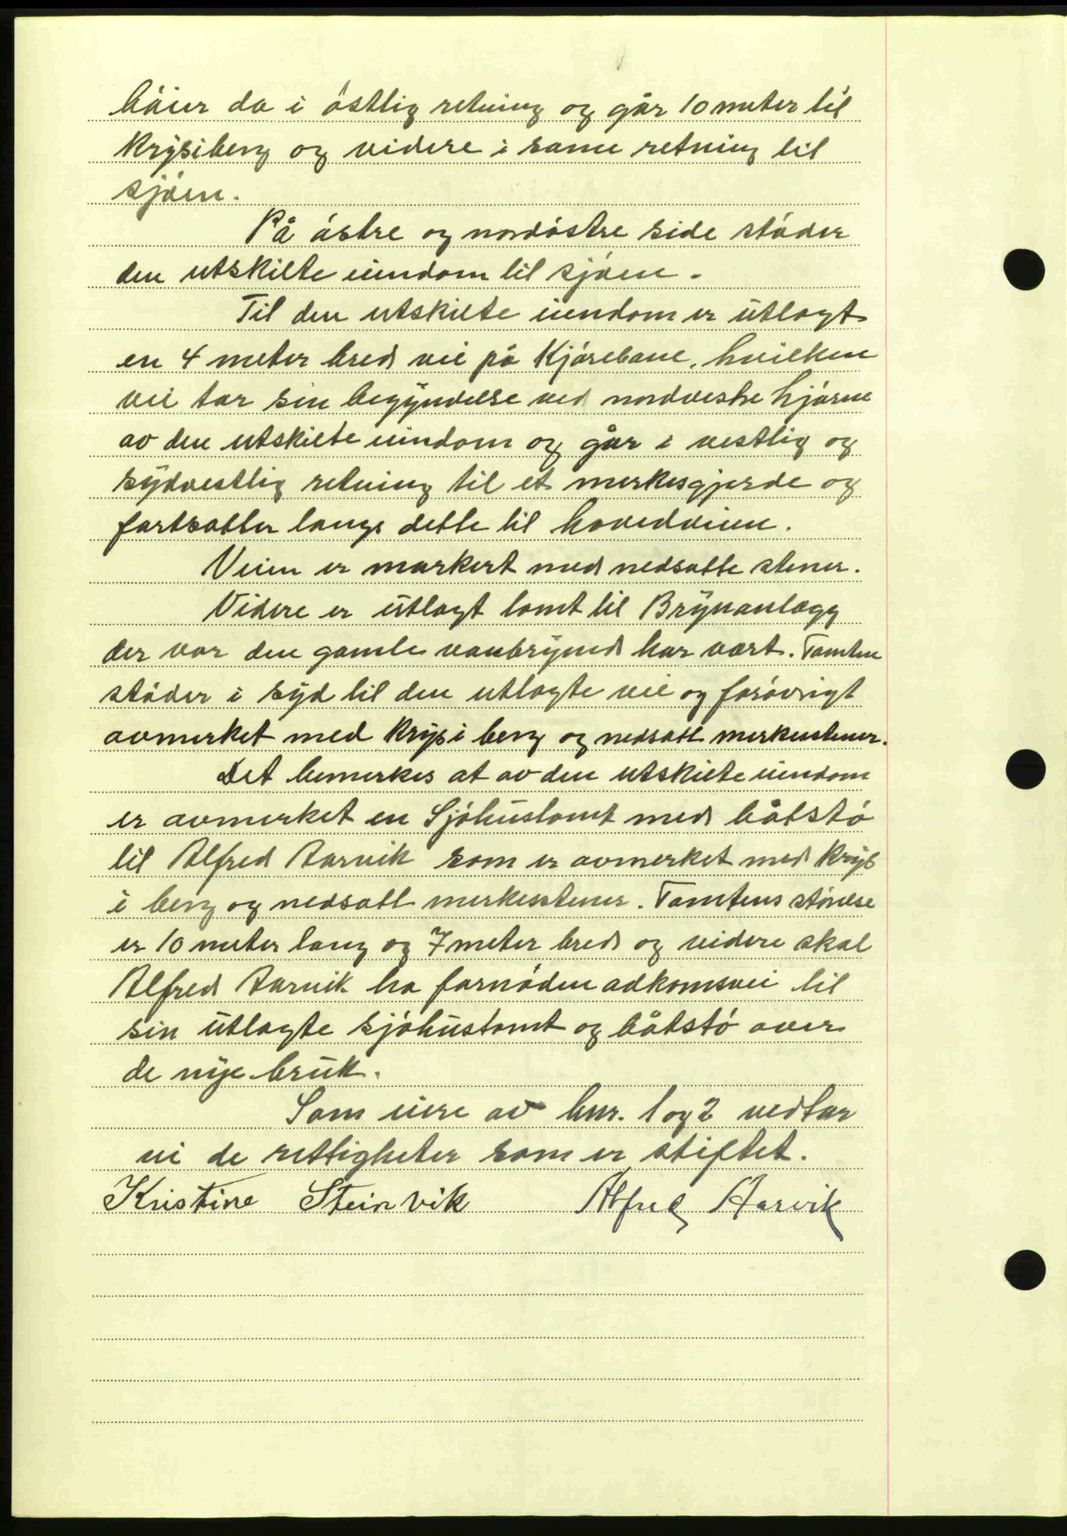 bøier da i østlig retning og går 10 meter til
Krysiberg og videre i same retning til
sjøen.
På østre og nordøstre side støder
den utskilte eiendom til sjøen.
Til den utskilte eiendom er utlagt
en 4 meter bred vei på Kjørebane, hvilken
vei tar sin begynnelse ved nordvestre hjørne
av den utskilte eiendom og går i vestlig og
sydvestlig retning til et merkesgjerde og
fortsatter langs dette til hovedveien.
Veien er markert med nedsatte stener.
Videre er utlagt tomt til Brynanlegg
der vor den gamle vanbrynd har vært. Tomten
støder i syd til den utlagte vei og forøvrigt
avmerket med krys i berg og nedsatt merkestener.
Det bemerkes at av den utskilte eiendom
er avmerket en Sjøhustomt med båtstø
til Alfred Aarvik som er avmerket med Krys
i berg og nedsatt merkesstener. Tomtens størelse
er 10 meter lang og 7 meter bred og videre skal
Alfred Aarvik ha fornøden adkomsvei til
sin utlagte sjøhustomt og båtstø over
de nye bruk.
Som eiere av bnr. 1 og 2 vedtar
vi de rettigheter som er stiftet.
Kristine Steinvik Alfred Aarvik